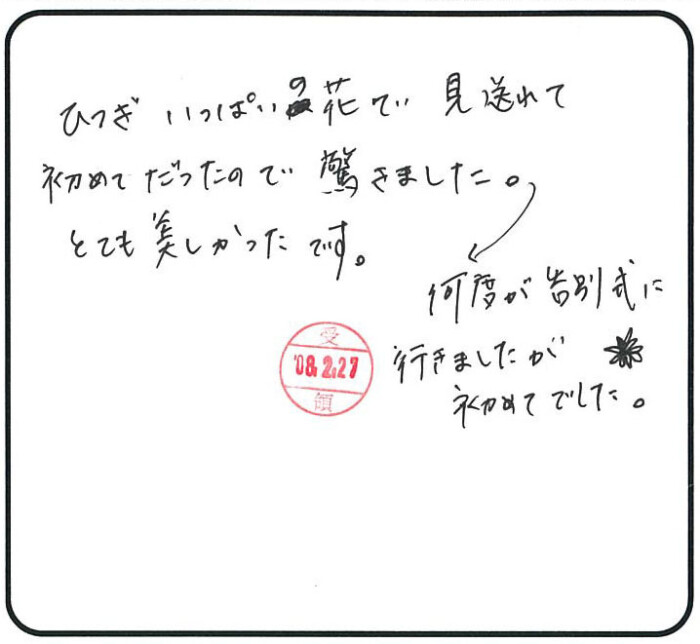 ひつぎいっぱいの花で見送れて
初めてだったので驚きました。
とても美しかったです。
何度が告別式に
行きましたが
初めてでした。
受
'08.2.27
領